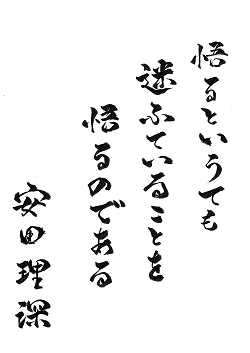 悟るというても
迷ふていることを
悟るのである
安田理深